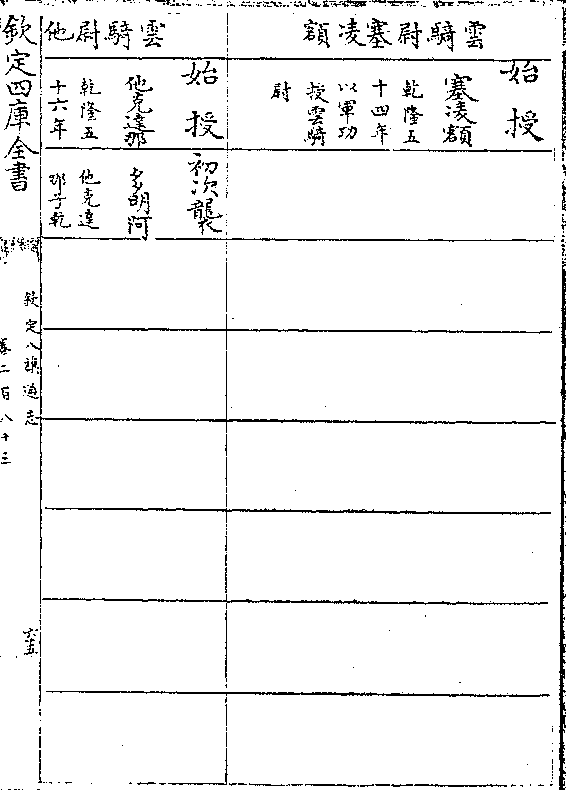 雲騎尉塞凌額
始授
塞凌額
乾隆五
十四年
以軍功
授雲騎
尉
雲騎尉他
始授
他克達那
乾隆五
十六年
初次襲
多明阿
他克達
那子乾
欽定四庫全書
欽定八旗通志
卷二百八十三
六五